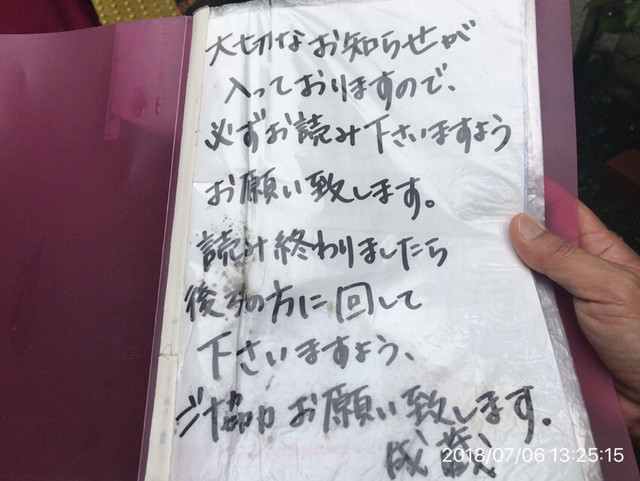 大切なお知らせが
入っておりますので、
必ずお読み下さいますよう
お願い致します。
読み終わりましたら
後ろの方に回して
下さいますよう、
ご協力お願い致します。
成蔵
2018/07/06 13:25:15